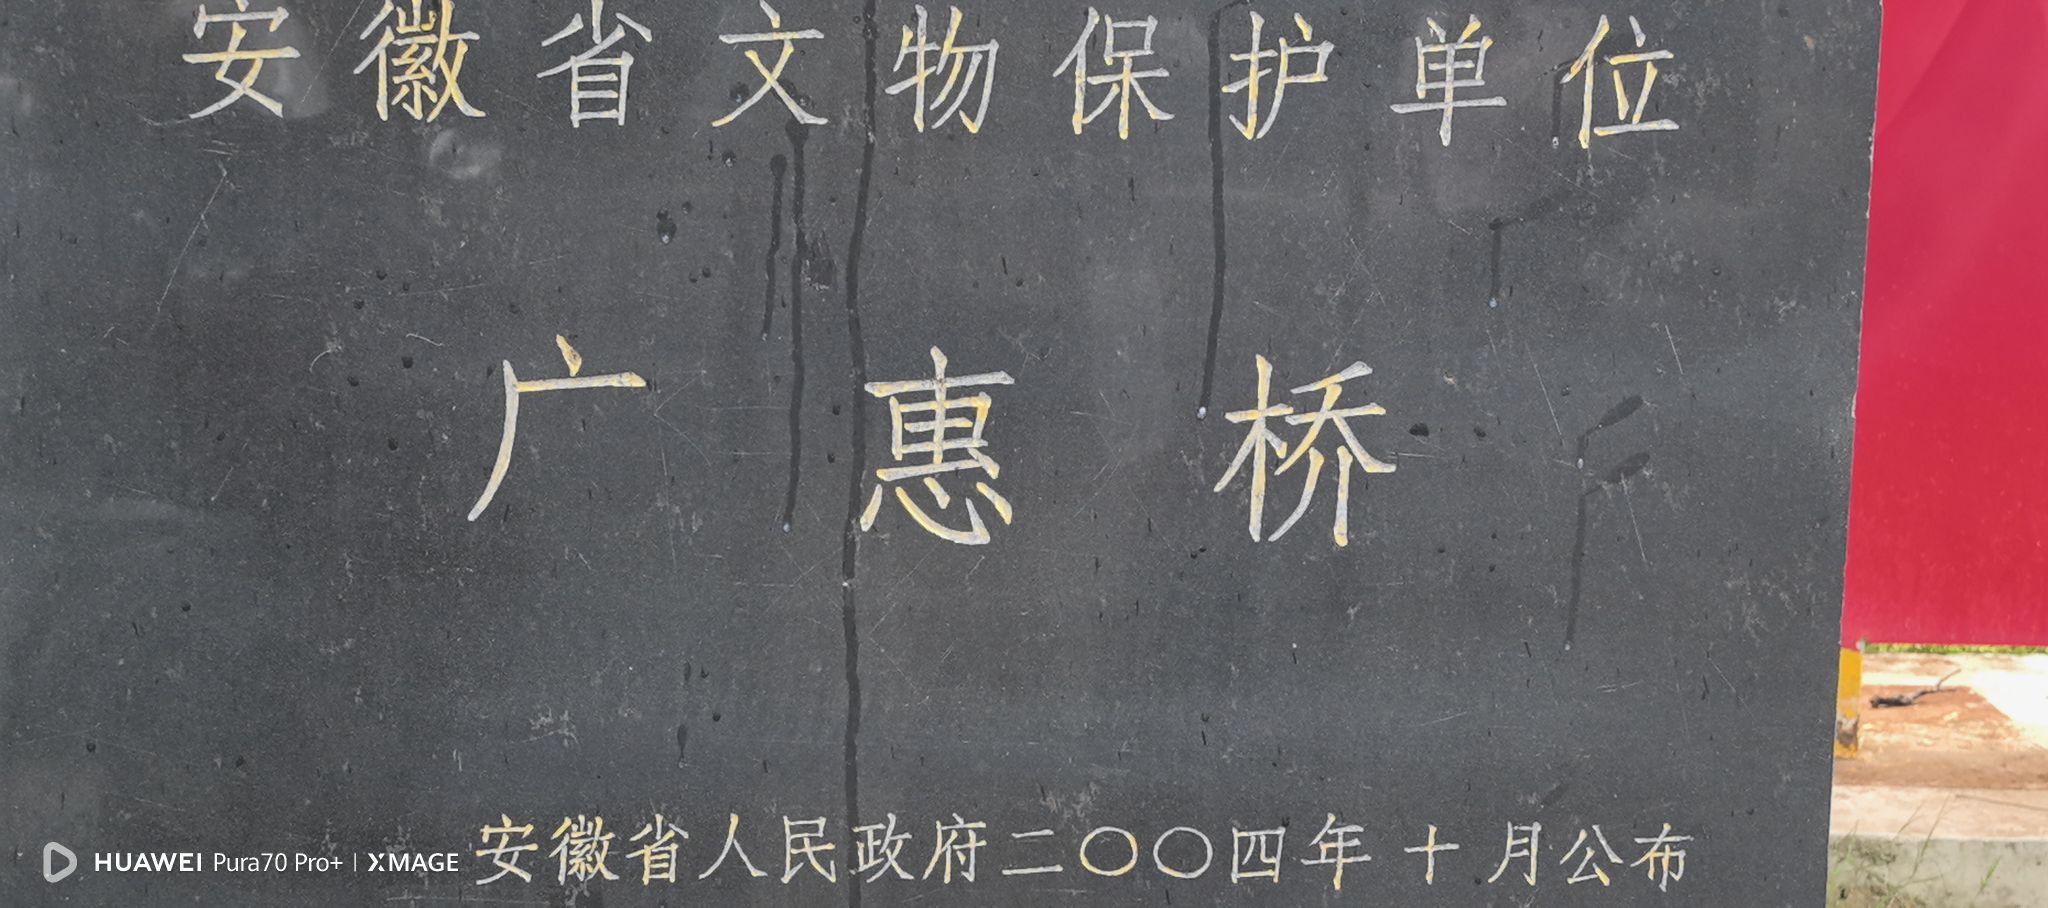 安徽省文物保护单位
广惠桥
安徽省人民政府二〇〇四年十月公布
HUAWEI Pura70 Pro+ | XMAGE